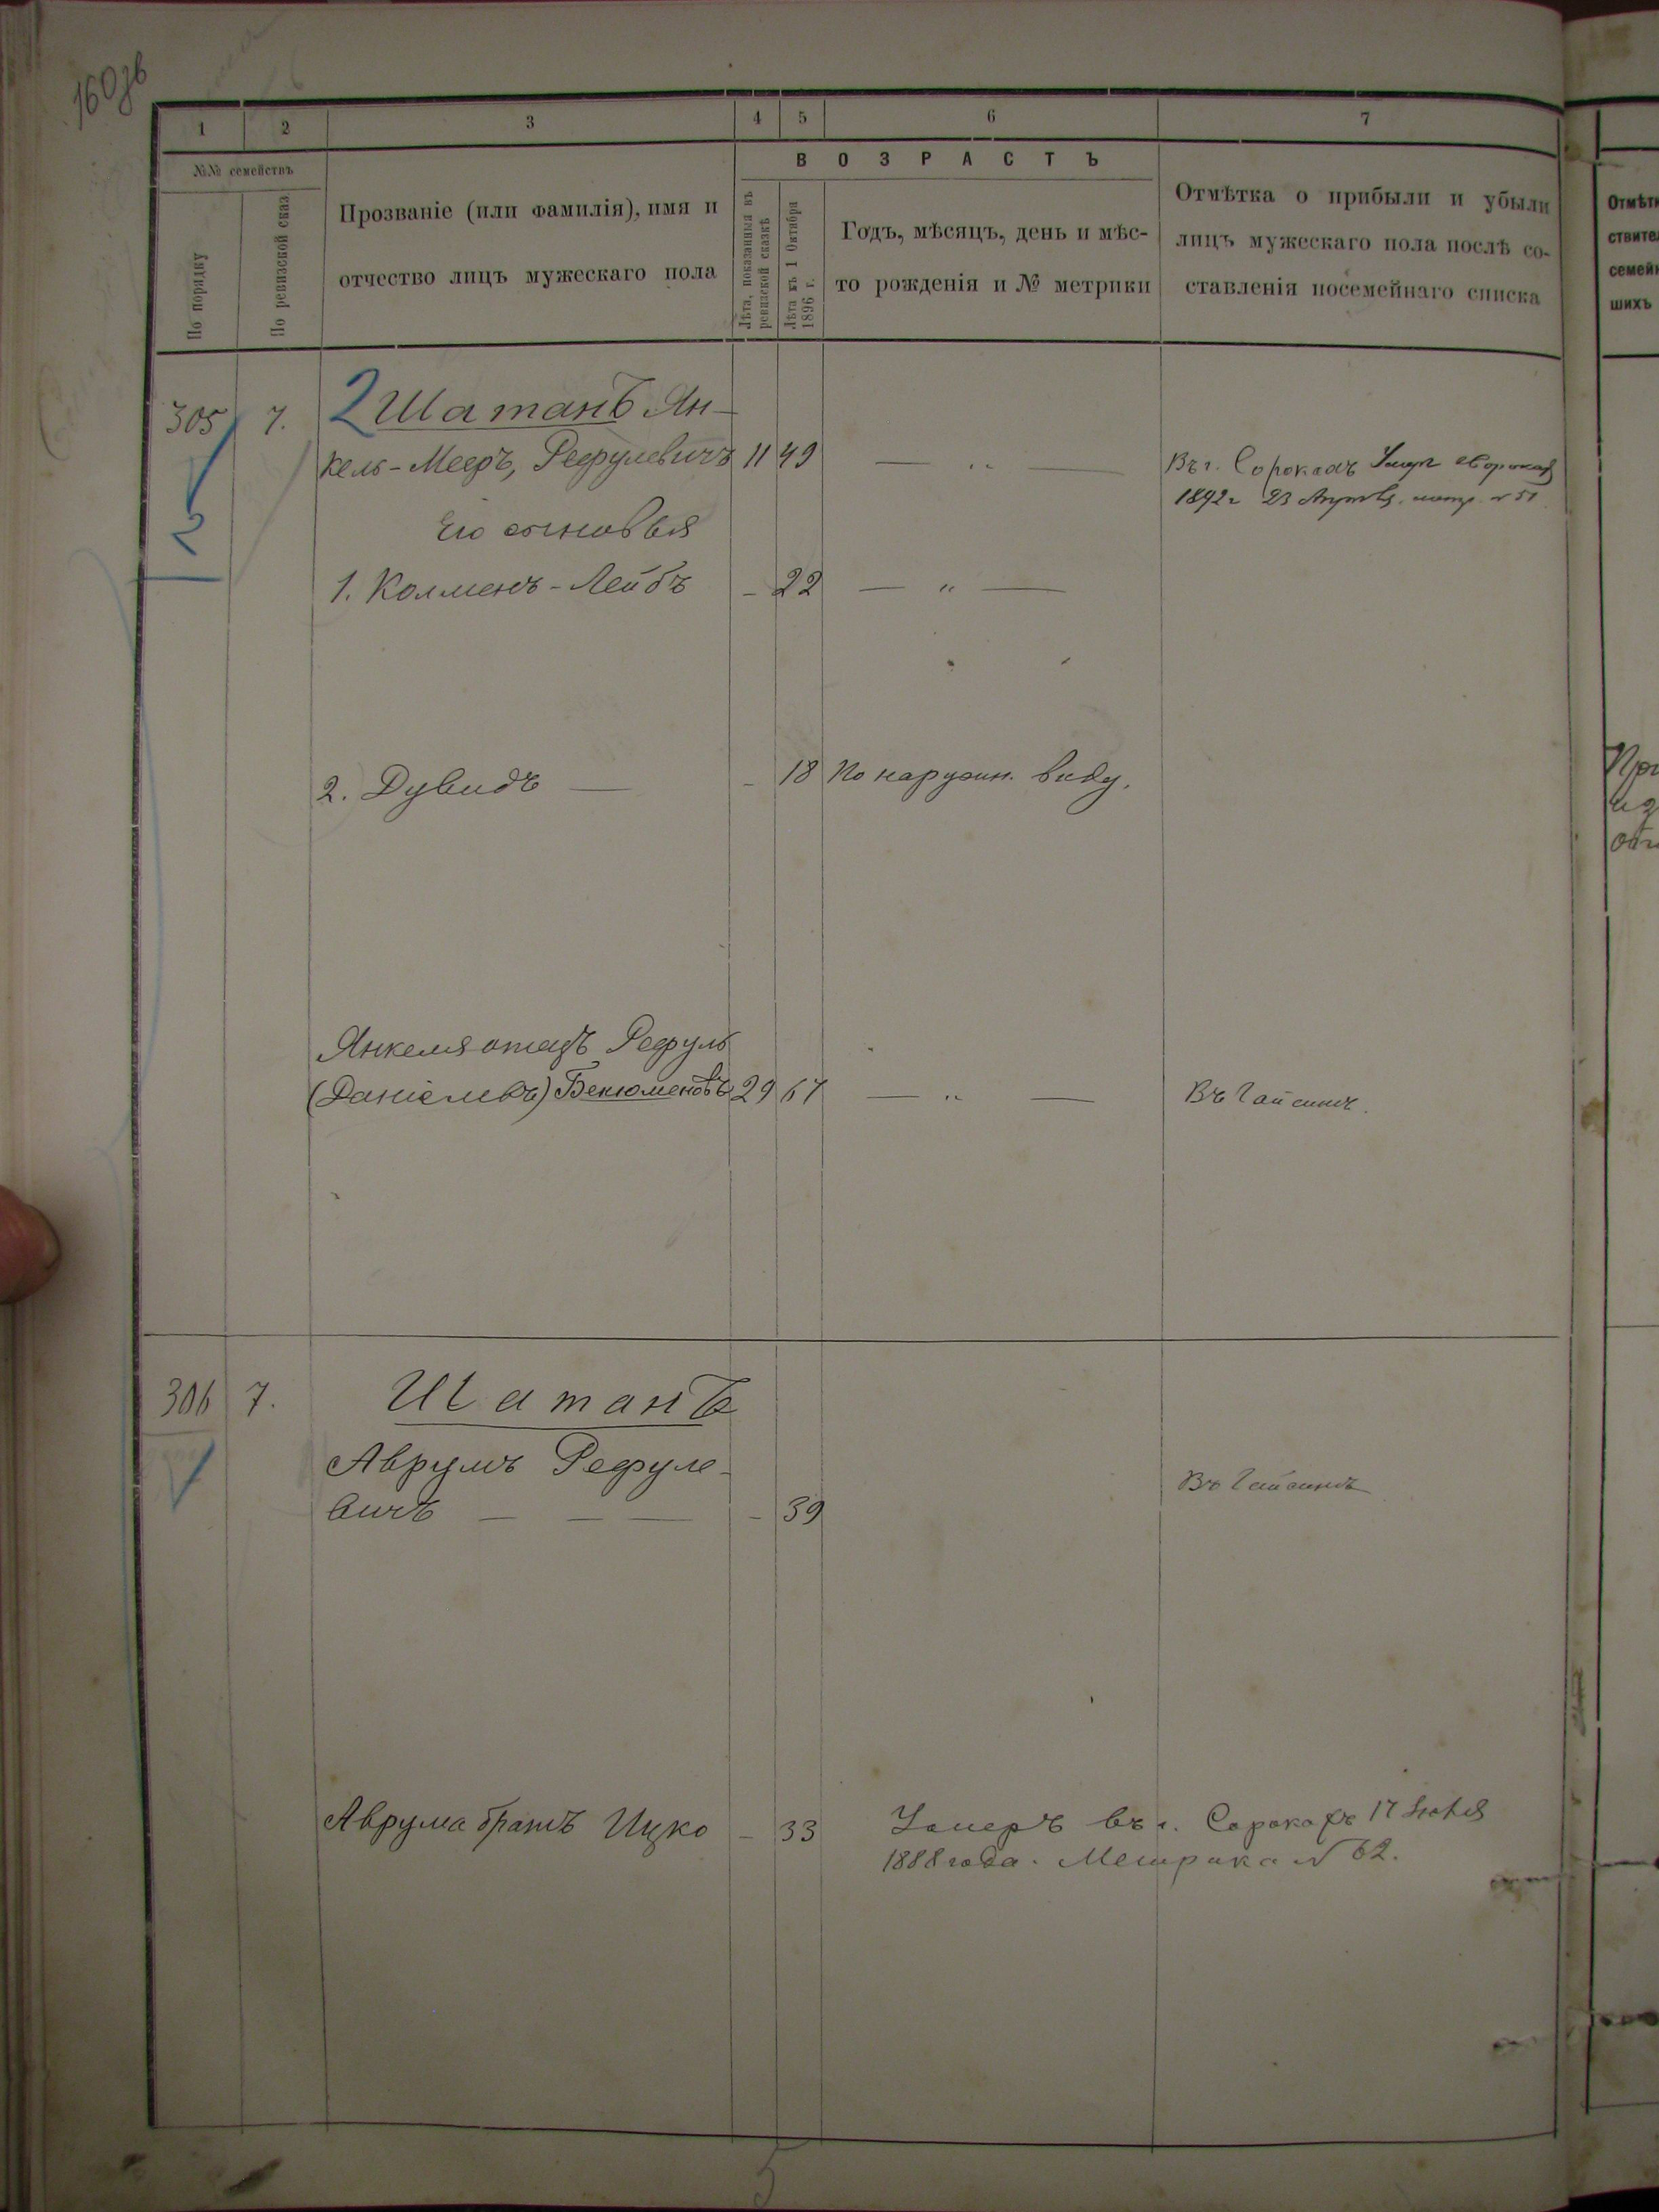 160зв
1 2 3 4 5 6 7
№№ семействъ
В О З Р А С Т Ъ
По порядку
По ревизской сказ
Прозваніе (или фамилія), имя и
отчество лицъ мужескаго пола
Лѣта, показанныя въ
ревизской сказкѣ
Лѣта къ 1 Октября
1896 г.
Годъ, мѣсяцъ, день и мѣс-
то рожденія и № метрики
Отмѣтка о прибыли и убыли
лицъ мужескаго пола послѣ со-
ставленія посемейнаго списка
305 7. 2 Шатанъ Ян-
кель-Мееръ, Рефулевичъ 11 49 — " — Въ г. Сорокахъ Умеръ въ Сорокахъ
1892 г 23 метр. № 51
Его сыновья
1. Колменъ-Лейбъ - 22 — " —
2. Дувидъ — - 18 По наружн. виду.
Янкеля отецъ Рефуль
(Даніелевъ) 29 67 — " — Въ Гайсинѣ.
306 7. Шатанъ
Аврумъ Рефуле-
вичъ — — — - 39 Въ Гайсинѣ
Аврума братъ Ицко - 33 Умеръ въ г. Сорокахъ 17
1888 года. Метрика № 62.
Отмѣтк
ствител
семейн
шихъ
При
из
5